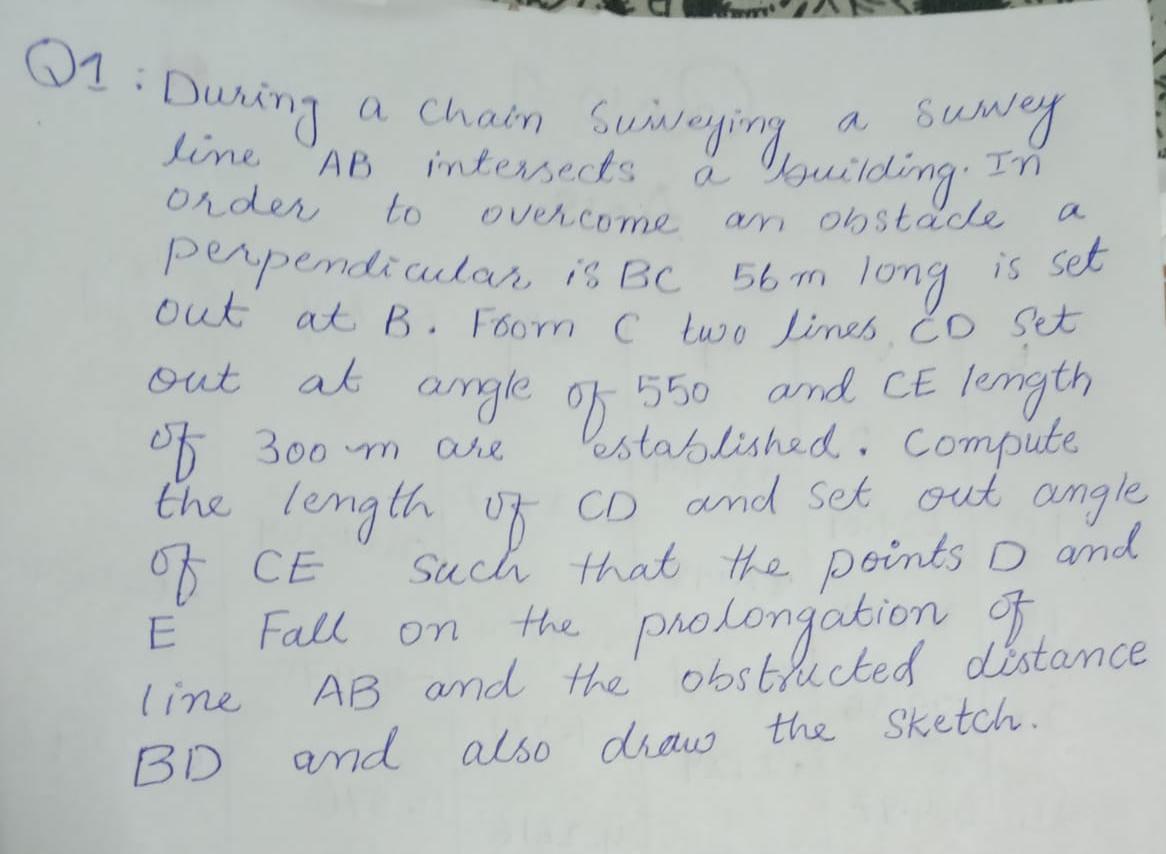 Q1: During a chain Surveying a survey
line AB intersects a building. In
order to overcome an obstacle a
perpendicular is BC 56 m long is set
out at B. From C two lines CD Set
out at angle of 550 and CE length
of 300 m are established. Compute
the length of CD and set out angle
of CE such that the points D and
E Fall on the prolongation of
line AB and the obstructed distance
BD and also draw the sketch.